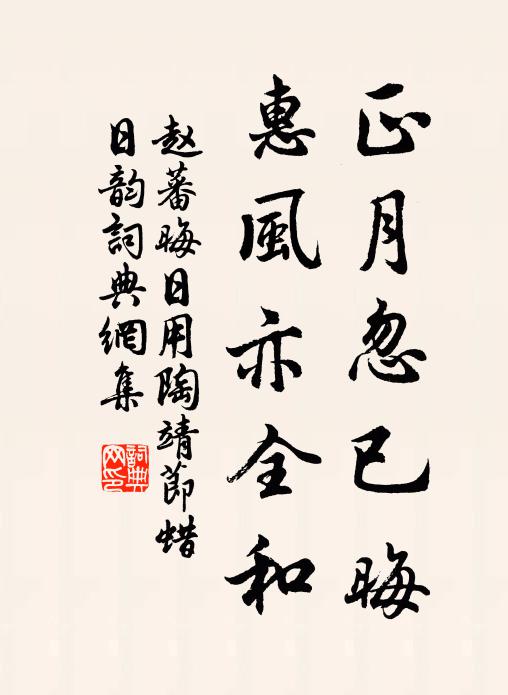 正月忽已晦
惠風亦全和
赵蕃晦日用陶靖節蜡
日韵詞典網集
詞典网印